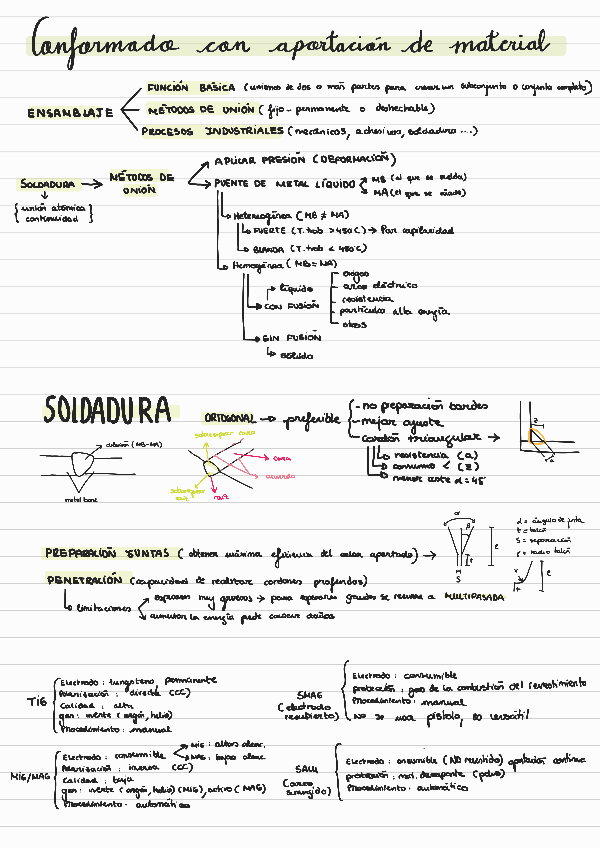 Conformado con aportación de material
FUNCIÓN BÁSICA (uniones de dos o más partes para crear un subconjunto o conjunto completo)
ENSAMBLAJE
MÉTODOS DE UNIÓN (fijo-permanente o deshechable)
PROCESOS INDUSTRIALES (mecánicos, adhesivos, soldadura ...)
APLICAR PRESIÓN (DEFORMACIÓN)
SOLDADURA → MÉTODOS DE UNIÓN
PUENTE DE METAL LÍQUIDO
MB (el que se suelda)
MA (el que se añade)
{unión atómica continuidad}
Heterogénea (MB ≠ MA)
FUERTE (T. trab > 450 C) → Por capilaridad
BLANDA (T. trab < 450 C)
Homogénea (MB = MA)
líquido
CON FUSIÓN
oxigas
arco eléctrico
resistencia
partículas alta energía
otros
SIN FUSIÓN
sólido
SOLDADURA
ORTOGONAL → preferible
- no preparación bordes
- mejor ajuste
- cordón triangular →
resistencia (a)
consumo < (z)
menor coste α = 45
z
dilución (MB-MA)
metal base
sobreespesor cara
cara
raíz
PREPARACIÓN JUNTAS (obtener máxima eficiencia del calor aportado) →
α
β
t
e
H
S
α = ángulo de junta
t = talón
S = separación
r = radio talón
r
e
PENETRACIÓN (capacidad de realizar cordones profundos)
limitaciones
espesores muy gruesos → para espesores grandes se recurre a MULTIPASADA
aumentar la energía puede causar daños
TIG
Electrodo: tungsteno, permanente
Polarización: directa (CC)
Calidad: alta
gas: inerte (argón, helio)
Procedimiento: manual
SMAG
(electrodo recubierto)
Electrodo: consumible
protección: gas de la combustión del revestimiento
Procedimiento: manual
NO se usa pistola, es versátil
MIG/MAG
Electrodo: consumible
MIG: altas aleac.
MAG: bajas aleac.
Polarización: inversa (CC)
Calidad: baja
gas: inerte (argón, helio) (MIG), activo (MAG)
Procedimiento: automático
SAW
(Arco sumergido)
Electrodo: consumible (NO revestido) aportación continua
protección: mat. desaporte (polvo)
Procedimiento: automático